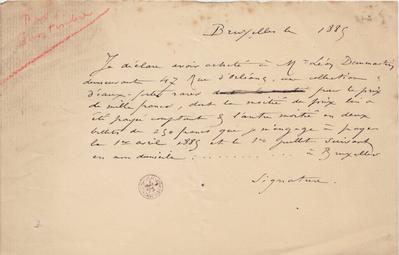 Bruxelles le 1885
Je déclare avoir acheté à Mr Léon Dommartin
demeurant 47 Rue d'Orléans, une collection
d'eaux-fortes rares pour le prix
de mille francs, dont la moitié du prix lui a
été payé comptant & l'autre moitié en deux
billets de 250 francs que je m'engage à payer
le 1er avril 1885 et le 1er Juillet suivant
en mon domicile . . . . . . . . . . à Bruxelles
Signature.